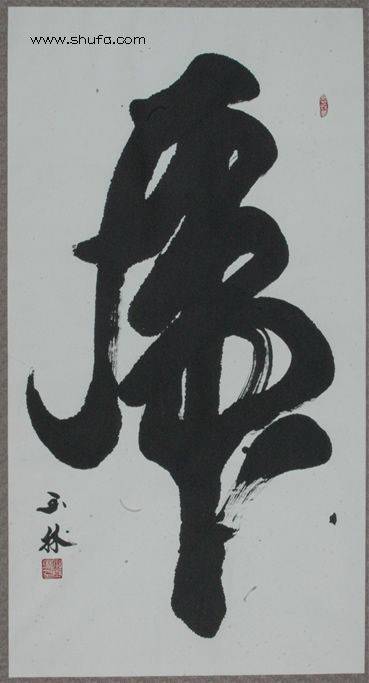 www.shufa.com
虎
玉林